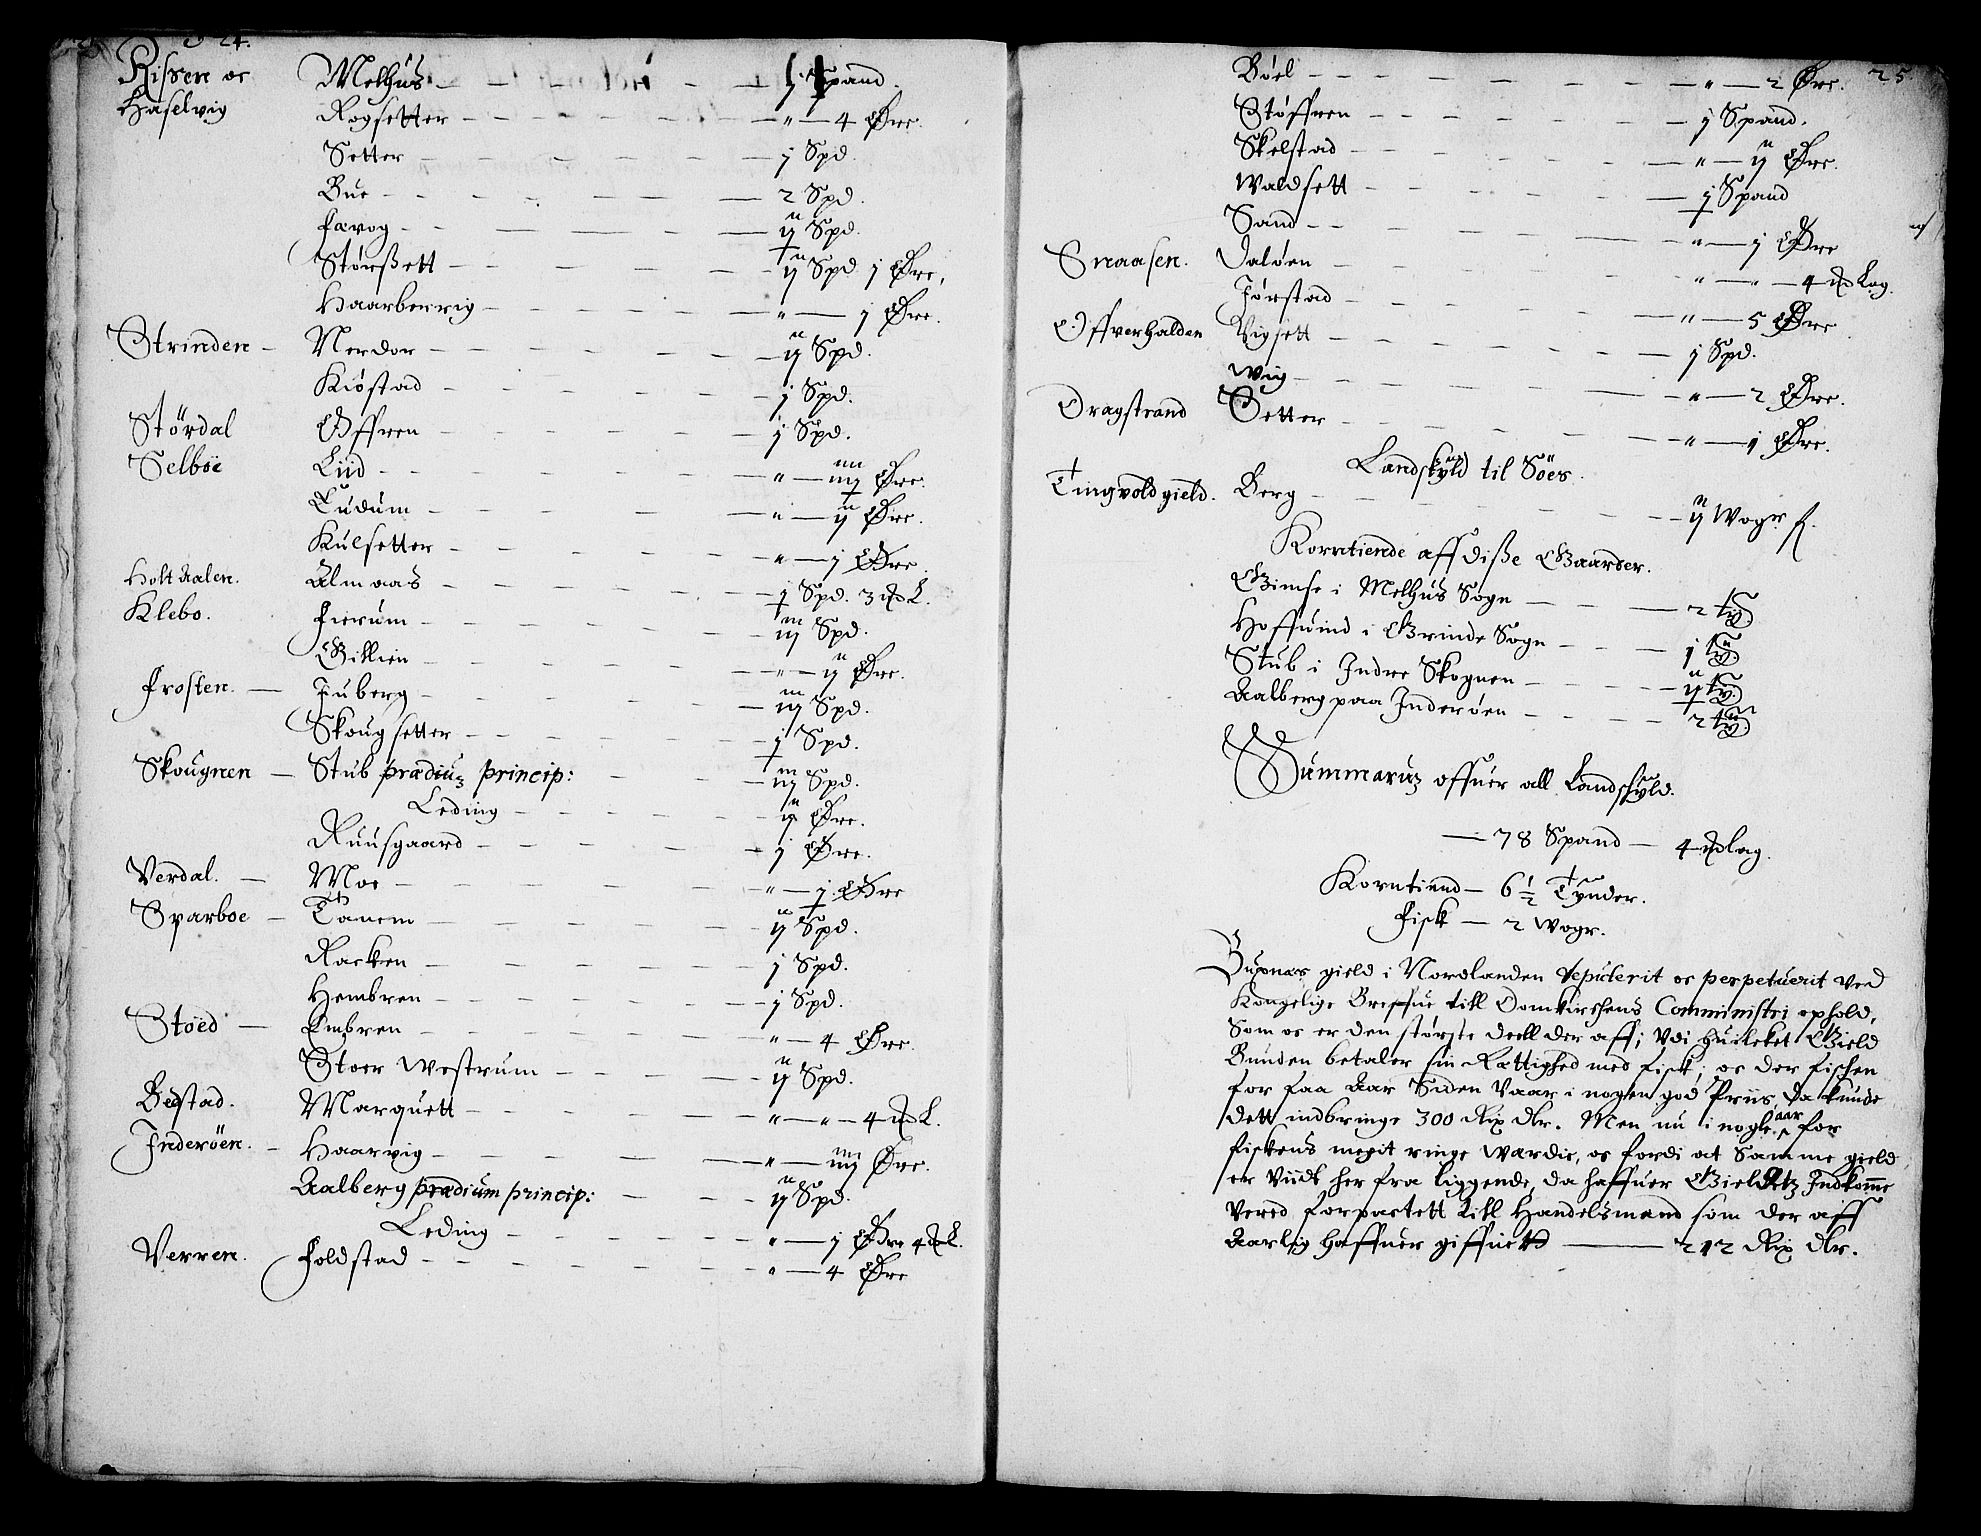 24.
Rissen oc Melhus 1 Spand.
Haselvig Rogsetter " 4 Øre.
Setter j Spd.
Bue 2 Spd.
Færog ij Spd.
Størßett ij Spd j Øre,
Haarberrig " j Øre.
Strinden Nerdor ij Spd.
Kiöstad j Spd.
Stördal Offren j Spd.
Selboe Liid " iiij Øre.
Ludum " ij Øre.
Kulsetter " j Øre.
Holtaalen. Almaas j Spd. 3 L.
Klebo. Fierum iij Spd.
Gillien " ij Øre.
Frosten. Juberg iij Spd.
Skougsetter j Spd.
Skougnen Stub prædiu princip: iij Spd.
Leding ij Øre.
Ruusgaard j Øre.
Verdal. Moe " j Øre
Sparboe Tanem ij Spd.
Racken j Spd.
Hembren j Spd.
Stoed Embren " 4 Øre.
Stoer Westrum ij Spd.
Bedstad. Marquett " " 4 L.
Inderöen. Haarvig " iiij Øre.
Aalberg prædium princip: ij Spd.
Leding " j Øre 4 L.
Verren. Foldstad " 4 Øre
25
Böel " 2 Øre.
Støffren j Spand.
Skelstad " ij Øre.
Waldsett j Spand
Sand " j Øre
Snaasen. Daløen " " 4 Lag.
Jørstad " 5 Øre
Offverhalden Vigsett j Spd.
Wiig " 2 Øre.
Dragstrand Setter " j Øre.
Landskyld til Söes.
Tingvoldgield. Berg ij Wogr f.
Korntiende aff diße Gaarder.
Gimse i Melhus Sogn 2 tÿ
Hoffuind i Grinde Sogn j tÿ
Stub i Indre Skognen ij tÿ
Aalberg paa Inderøen 2 tÿ
Summarum offuer all Landskyld.
78 Spand 4 lag.
Korntiend 6 1/2 Tynder.
Fisk 2 Wogr.
Buxnæs gield i Nordlanden deputerit oc perpetuerit ved
Kongelige Breffue till Domkirchens Comministri ophold,
Som oc er den største deell der aff; Udi huilcket Gield
Bunden betaler sin Rættighed med fisk; oc der fischen
for faa Aar Siden Vaar i nogen god Priis, da kunde
dett indbringe 300 Rix dlr. Men nu i nogle aar for
fiskens megit ringe Wærdie, oc fordi at Samme gield
er viidt her fra liggende, da haffuer Gieldetz Indkomme
vered forpactett till Handelsmænd som der aff
Aarlig haffuer giffuett 212 Rix dlr.